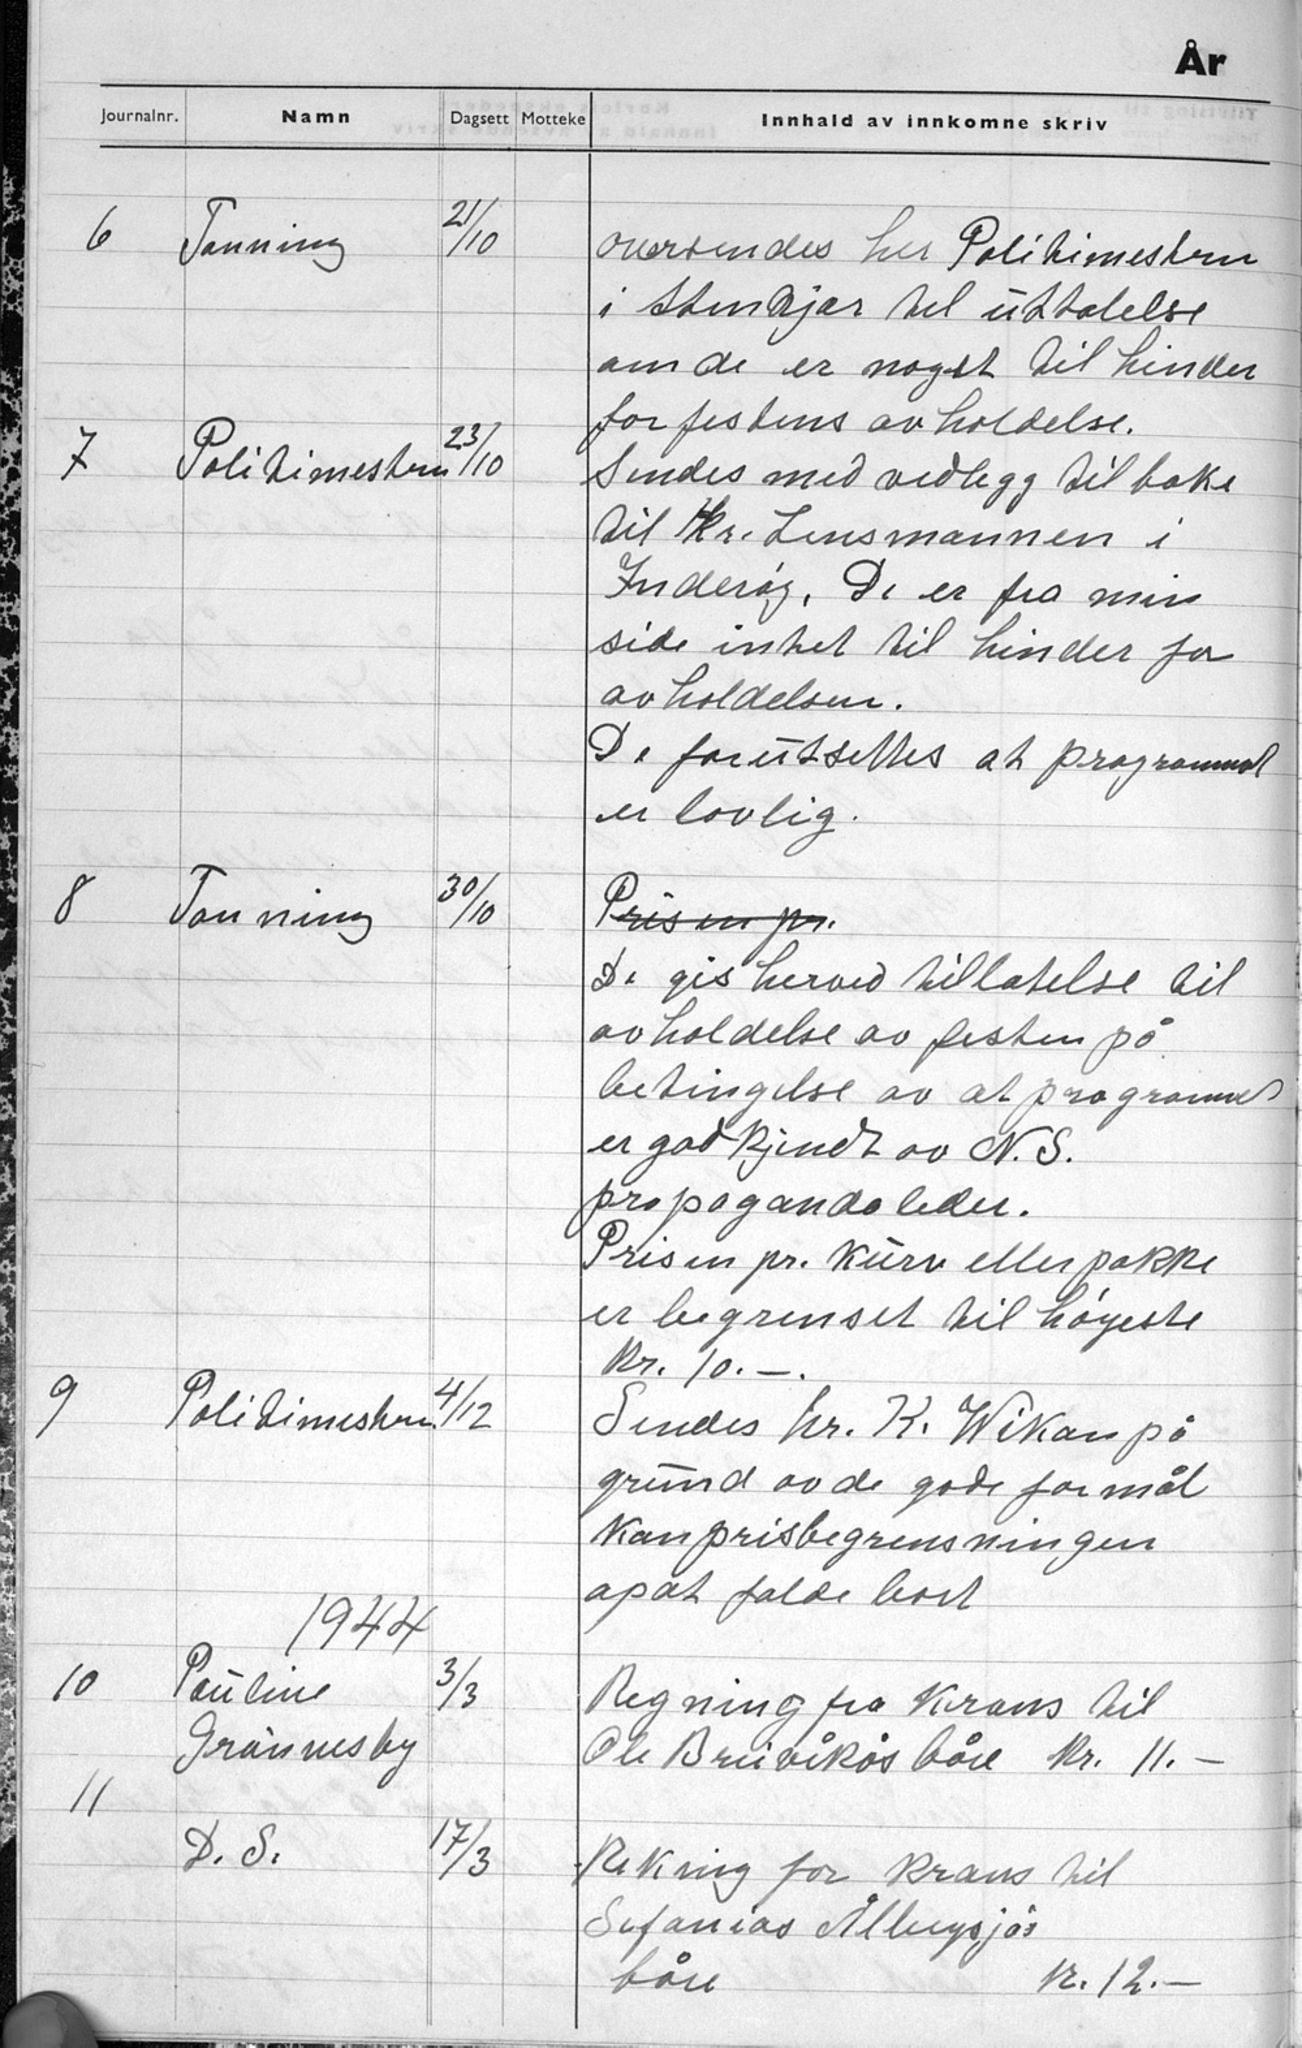 År
Journalnr. Namn Dagsett Motteke Innhald av innkomne skriv
6 Tanning 21/10 oversendes her Politimestern
i Stenkjær til uttalelse
om de er noget til hinder
for festens avholdelse.
7 Politimestern 23/10 Sendes med vedlegg tilbake
til Hr. Lensmannen i
Inderøy. De er fra min
side intet til hinder for
avholdelsen.
De forutsettes at programmet
er lovlig.
8 Tanning 30/10 Prisen pr.
De gis herved tillatelse til
avholdelse av festen på
betingelse av at programmet
er godkjendt av N.S.
propagandaleder.
Prisen pr. Kurv eller pakke
er begrenset til høgeste
Kr. 10.—.
9 Politimestern 4/12 Sendes hr. K. Wikan på
grund av de gode formål
Kan prisbegrensningen
apat falde bort
1944
10 Pauline 3/3 Regning fra Krans til
Grønnesby Ole Breivikås båre Kr. 11.—
11
D. S. 17/3 Rekning for Krans til
Sefanias Ålbergsjøs
båre Kr. 12.—